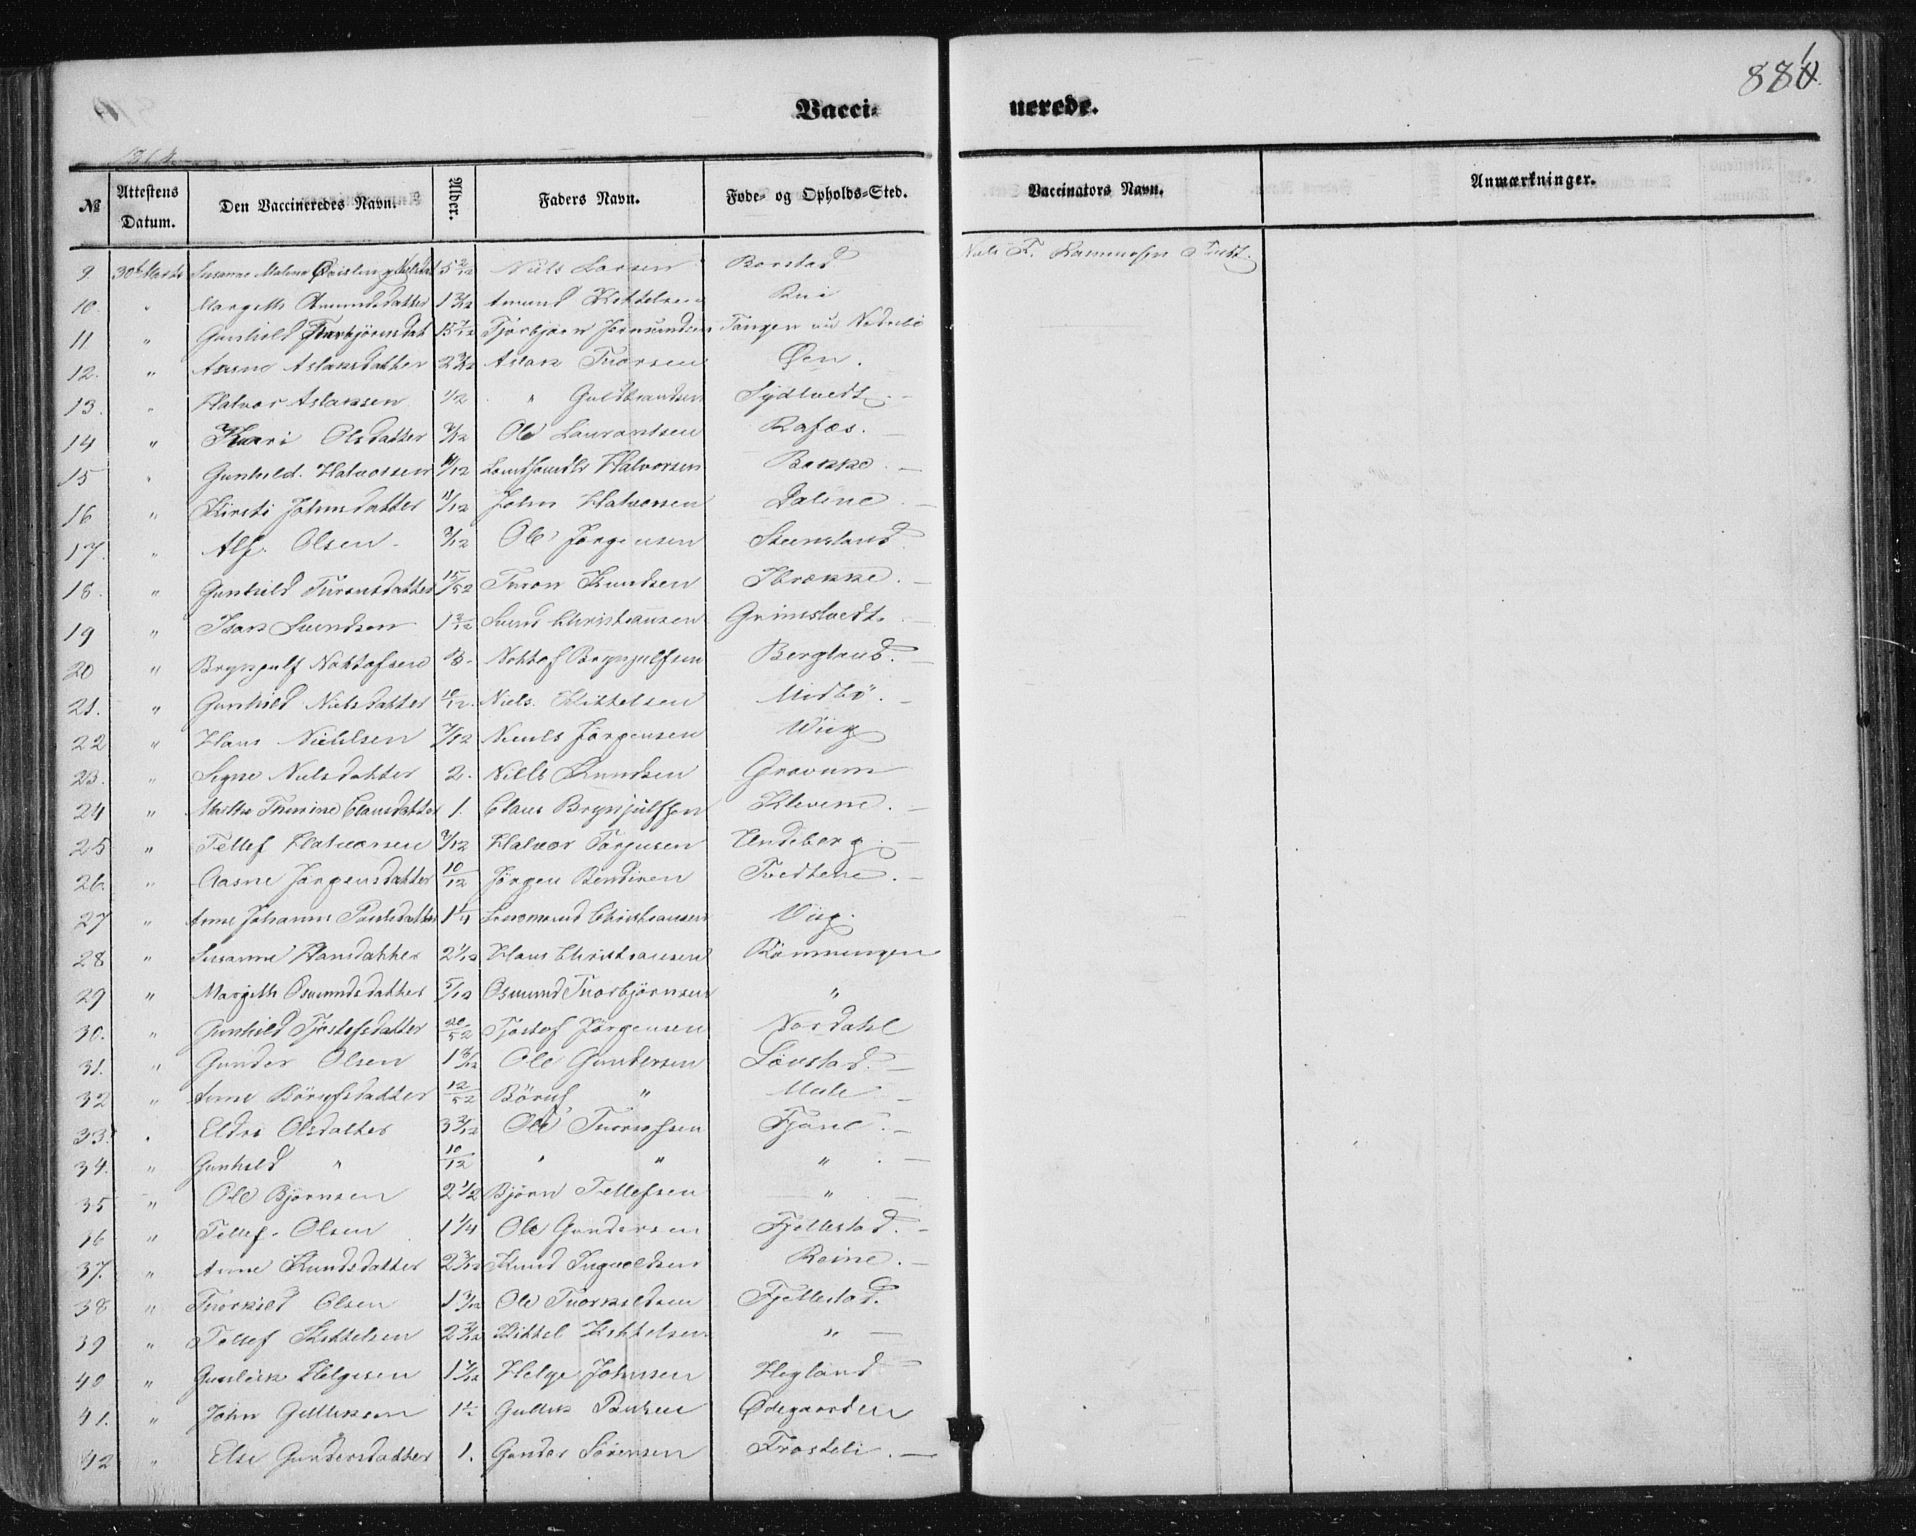 886
Vacci-
nerede.
№ Attestens Datum. Den Vaccineredes Navn. Alder. Faders Navn. Føde- og Opholds-Sted. Vaccinators Navn. Anmærkninger.
9 30te Marts Susanne Malene 5 2/12 Niels Larsen Borstad Niels F. Rasmussen Tvedt.
10. " Margith Amundsdatter 1 3/12 Amund Kittelsen Rui
11 " Gunhild Thorbjörnsdat Tjorbjørn Tangen
12. " Aasne Aslaksdatter 2 3/12 Aslak Thorsen Øen.
13. " Halvor Aslaksen 1/2 " Guldbrandsen Sydtvedt. -
14 " Kari Olsdatter 3/12 Ole Laurantsen Rafæs. -
15 " Gunhild. Halvorsen Halvorsen Bakke. -
16 " Kirsti Johnsdatter 11/12 John Halvorsen Daline -
17. " Alf. Olsen - 3/12 Ole Jørgensen Steensland
18. " Gunhild Turonsdatter 15/52 Turon Knudsen Ibrække. -
19 " Isak Svendsen 1 2/12 Svend Christiansen Grimstvedt. -
20 " Brynjulf Nottofsen Nottof Brynjulfsen Bergland. -
21. " Gunhild Nielsdatter 10/12. Niels. Kittelsen Midbö. -
22 " Hans Nielsen 7/12 Jørgensen Wiig
23. " Signe Nielsdatter 2. Niels Knudsen Gravum
24 " Marthe Thorine Clausdatter 1. Claus Brynjulfsen Klevene. -
25 " Tellef Halvorsen 3/12 Halvor Torjusen Undeberg. -
26. " Aasne Jørgensdatter 10/12 Jørgen Bendixen Tvedtene. -
27 " Anne Johanne Christiansen Wiig.
28 " Susanne Hansdatter 2 1/12 Hans Christiansen Rönnungen
29 " Margith Osmundsdatter 5/12 Osmund Thorbjørnsen "
30. " Gunhild Tjostofsdatter 20/52 Tjostof Jørgensen Nordahl
31. " Gunder Olsen 1 3/12 Ole Gundersen Løvstad. -
32 " Anne Börufsdatter 12/52 Böruf " Mule -
33. " Eldri Olsdatter 3 3/12 Ole Fjone. -
34. " Gunhild " 10/12 " " " -
35 " Ole Bjørnsen 2 1/2 Bjørn Tellefsen " -
36 " Tellef. Olsen 1 1/4 Ole Gundersen Fjellestad. -
37. " Anne Knudsdatter 2 3/12 Knud Ingvoldsen Reine. -
38 " Thorkild Olsen 1 3/12 Ole Thorkildsen Fjellestad.
39 " Tellef Kittelsen 2 3/12 Kittel Kittelsen " -
40 " Gunleik Helgesen Helge Johnsen Hegland -
41. " John Gulliksen 1 1/2 Gullik Ødegaarden
42 " Else Gundersdatter 1. Gunder Sörensen Frosteli. -